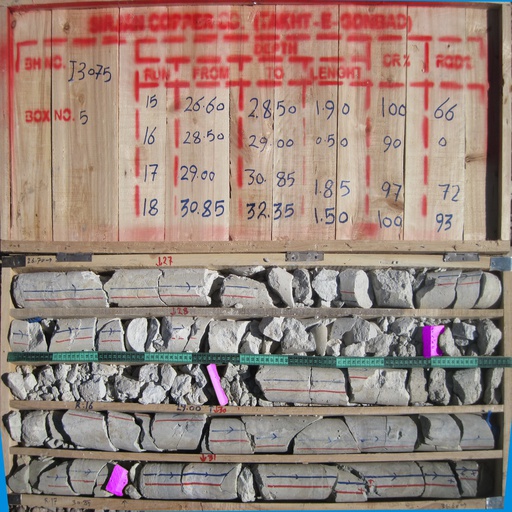 SIRJAN COPPER CO. (TAKHT-E-GONBAD)
DEPTH
BH NO. J3075 RUN FROM TO LENGHT CR% RQD%
BOX NO. 5
15 26.60 28.50 1.90 100 66
16 28.50 29.00 0.50 90 0
17 29.00 30.85 1.85 97 72
18 30.85 32.35 1.50 100 93
↓27
↓28
29.00